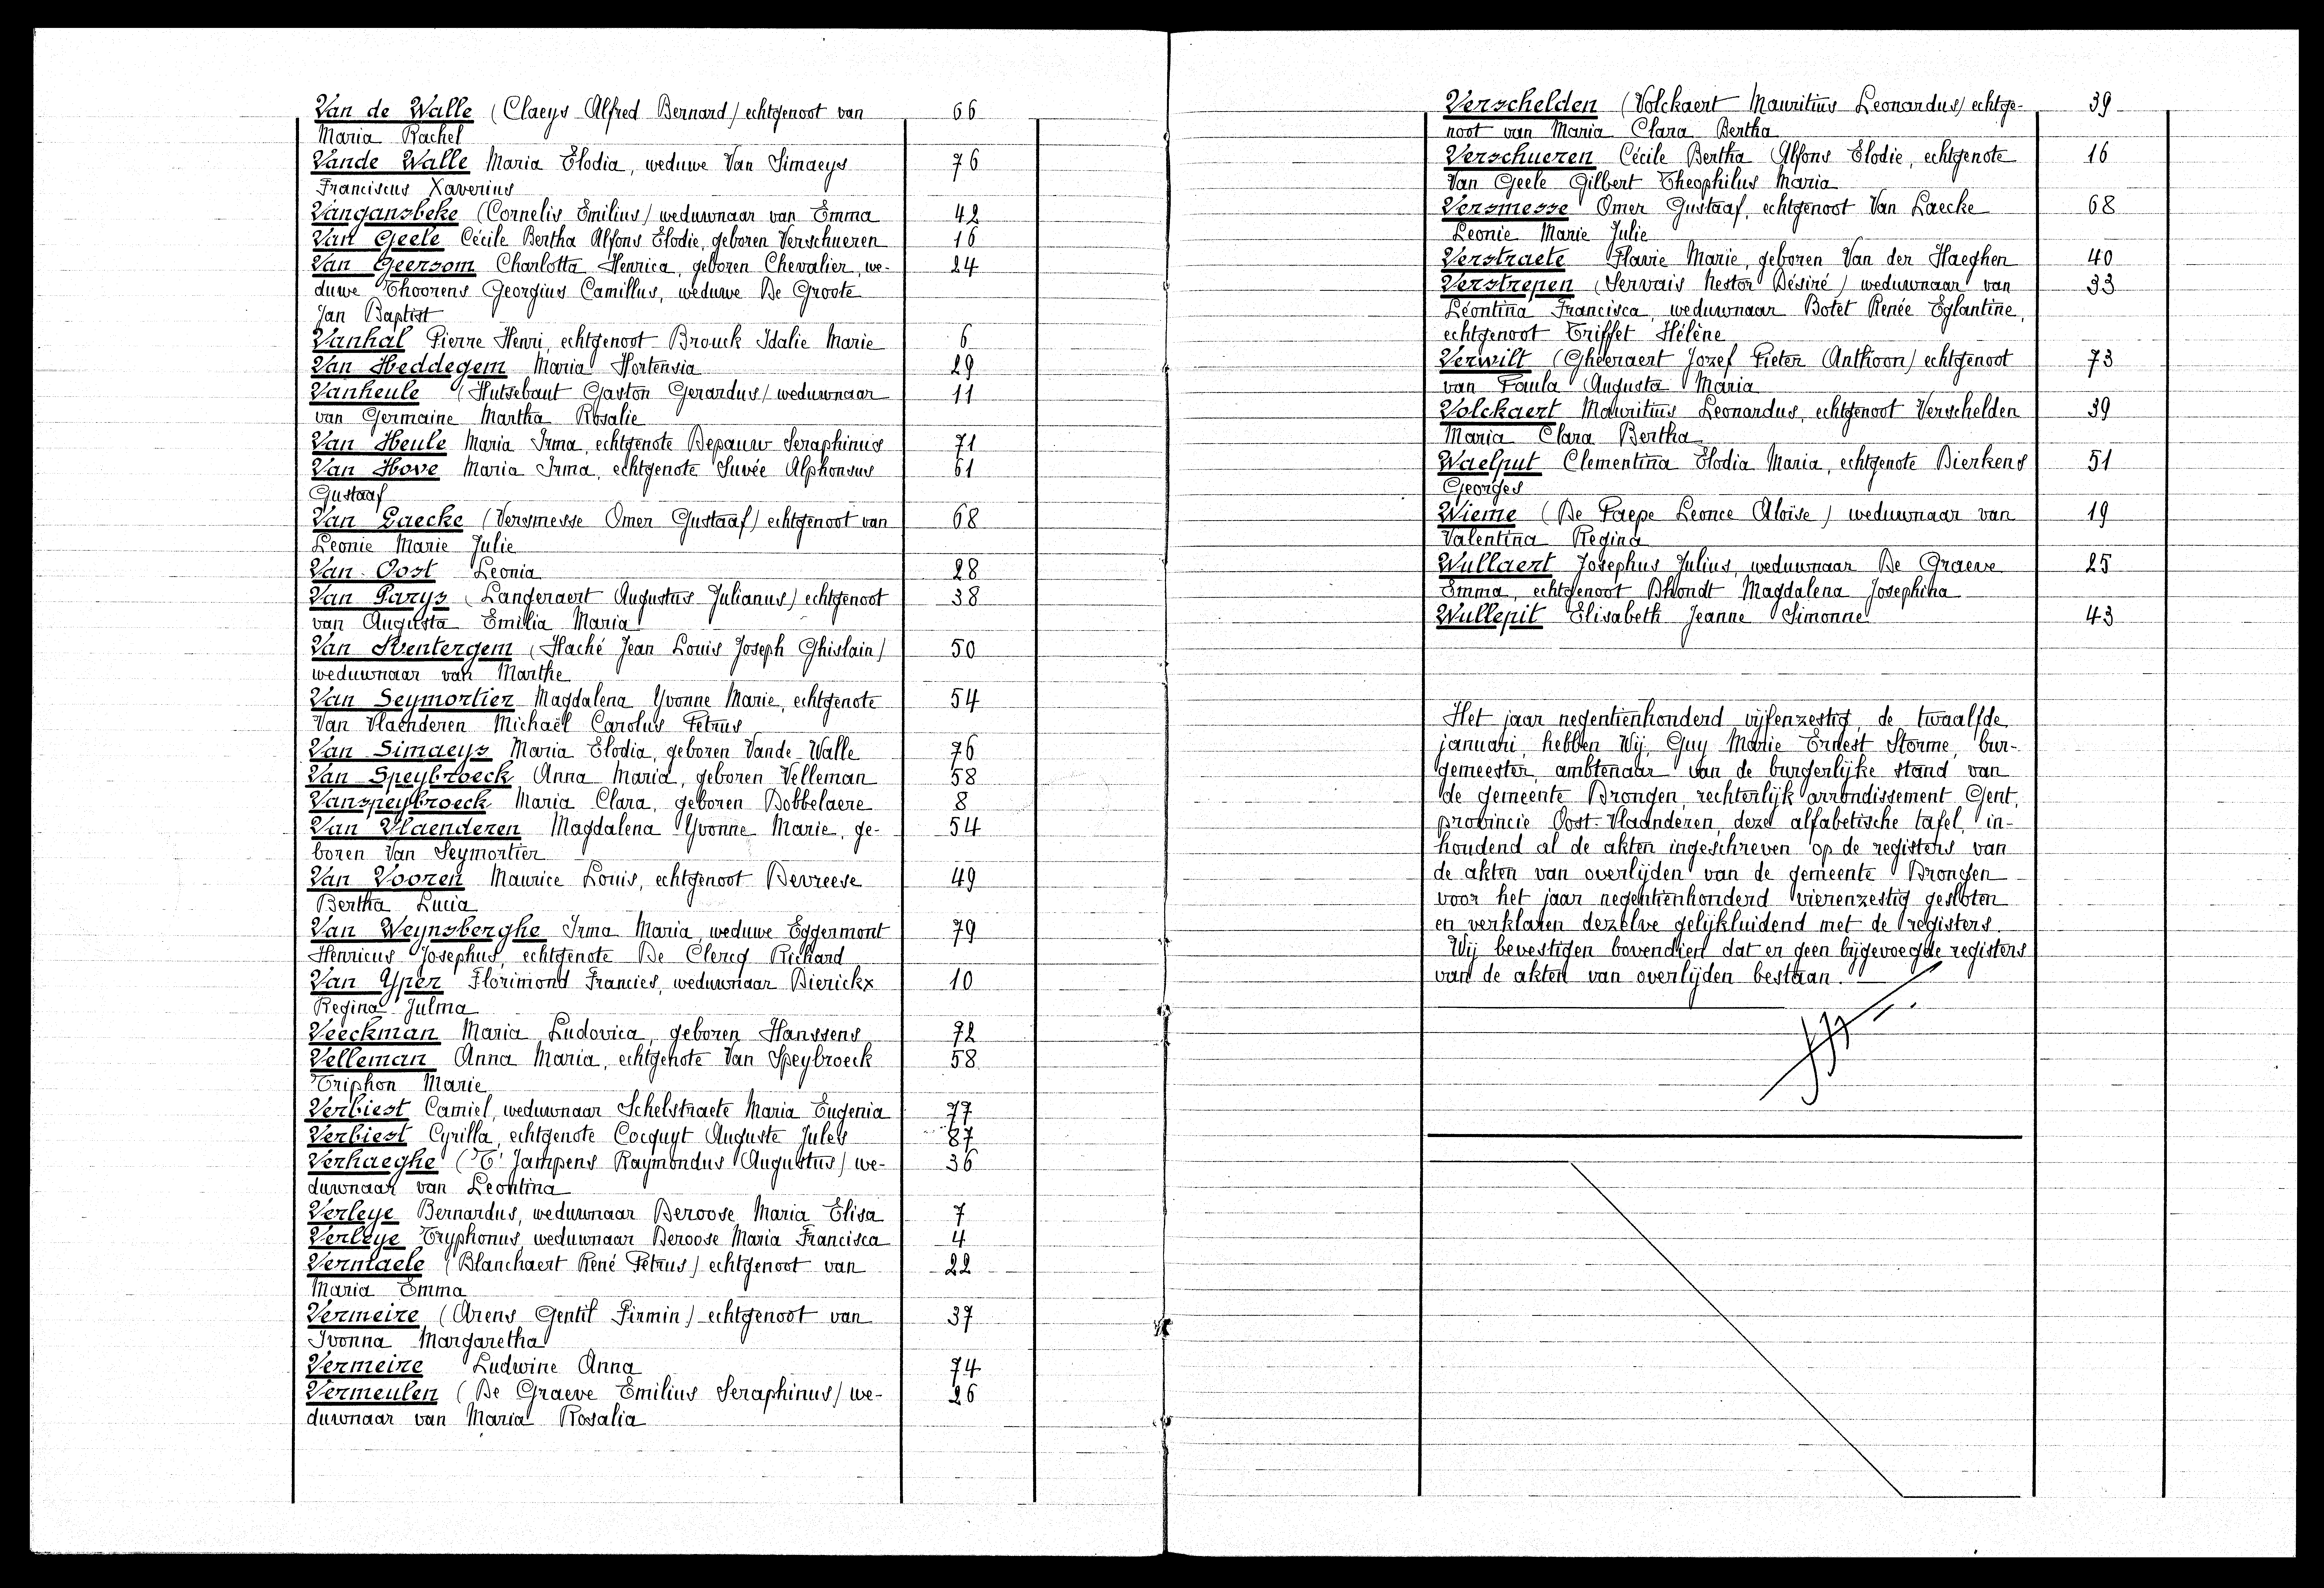 Van de Walle (Claeys Alfred Bernard) echtgenoot van 66
Maria Rachel
Vande Walle Maria Elodia, weduwe Van Simaeys 76
Franciscus Xaverius
Vangansbeke (Cornelis Emilius) weduwnaar van Emma 42
Van Geele Cécile Bertha Alfons Elodie, geboren Verschueren 16
Van Geersom Charlotta Henrica, geboren Chevalier, we- 24
duwe Thoorens Georgius Camillus, weduwe De Groote
Jan Baptist
Vanhal Pierre Henri, echtgenoot Brouck Idalie Marie 6
Van Heddegem Maria Hortensia 29
Vanheule (Hutsebaut Gaston Gerardus) weduwnaar 11
van Germaine Martha Rosalie
Van Heule Maria Irma, echtgenote Depauw Seraphinus 71
Van Hove Maria Irma, echtgenote Suvée Alphonsus 61
Gustaaf
Van Laecke (Versmesse Omer Gustaaf) echtgenoot van 68
Leonie Marie Julie
Van Oost Leonia 28
Van Parys (Langeraert Augustus Julianus) echtgenoot 38
van Augusta Emilia Maria
Van Sventergem (Haché Jean Louis Joseph Ghislain) 50
weduwnaar van Marthe
Van Seymortier Magdalena Yvonne Marie, echtgenote 54
Van Vlaenderen Michaël Carolus Petrus
Van Simaeys Maria Elodia, geboren Vande Walle 76
Van Speybroeck Anna Maria, geboren Velleman 58
Vanspeybroeck Maria Clara, geboren Dobbelaere 8
Van Vlaenderen Magdalena Yvonne Marie, ge- 54
boren Van Seymortier
Van Vooren Maurice Louis, echtgenoot Devreese 49
Bertha Lucia
Van Weynsberghe Irma Maria, weduwe Eggermont 79
Henricus Josephus, echtgenote De Clercq Richard
Van Yper Florimond Francies, weduwnaar Dierickx 10
Regina Julma
Veeckman Maria Ludovica, geboren Hanssens 72
Velleman Anna Maria, echtgenote Van Speybroeck 58
Triphon Marie
Verbiest Camiel, weduwnaar Schelstraete Maria Eugenia 77
Verbiest Cyrilla, echtgenote Cocquyt Auguste Jules 87
Verhaeghe (T' Jampens Raymondus Augustus) we- 36
duwnaar van Leontina
Verleye Bernardus, weduwnaar Deroose Maria Elisa 7
Verleye Tryphonus, weduwnaar Deroose Maria Francisca 4
Vermaele (Blanchaert René Petrus) echtgenoot van 22
Maria Emma
Vermeire (Arens Gentil Firmin) echtgenoot van 37
Ivonna Margaretha
Vermeire Ludwine Anna 74
Vermeulen (De Graeve Emilius Seraphinus) we- 26
duwnaar van Maria Rosalia
Verschelden (Volckaert Mauritius Leonardus) echtge- 39
noot van Maria Clara Bertha
Verschueren Cécile Bertha Alfons Elodie, echtgenote 16
Van Geele Gilbert Theophilus Maria
Versmesse Omer Gustaaf, echtgenoot Van Laecke 68
Leonie Marie Julie
Verstraete Flavie Marie, geboren Van der Haeghen 40
Verstrepen (Servais Nestor Désiré) weduwnaar van 33
Léontina Francisca, weduwnaar Botet Renée Eglantine,
echtgenoot Triffet Hélène
Verwilt (Gheeraert Jozef Pieter Anthoon) echtgenoot 73
van Paula Augusta Maria
Volckaert Mauritius Leonardus, echtgenoot Verschelden 39
Maria Clara Bertha
Waelput Clementina Elodia Maria, echtgenote Dierkens 51
Georges
Wieme (De Paepe Leonce Aloïse) weduwnaar van 19
Valentina Regina
Wullaert Josephus Julius, weduwnaar De Graeve 25
Emma, echtgenoot Dhondt Magdalena Josephina
Wullepit Elisabeth Jeanne Simonne 43
Het jaar negentienhonderd vijfenzestig, de twaalfde
januari, hebben Wij, Guy Marie Ernest Storme, bur-
gemeester, ambtenaar van de burgerlijke stand van
de gemeente Drongen, rechterlijk arrondissement Gent,
provincie Oost-Vlaanderen, deze alfabetische tafel, in-
houdend al de akten ingeschreven op de registers van
de akten van overlijden van de gemeente Drongen
voor het jaar negentienhonderd vierenzestig gesloten
en verklaren dezelve gelijkluidend met de registers.
Wij bevestigen bovendien dat er geen bijgevoegde registers
van de akten van overlijden bestaan.